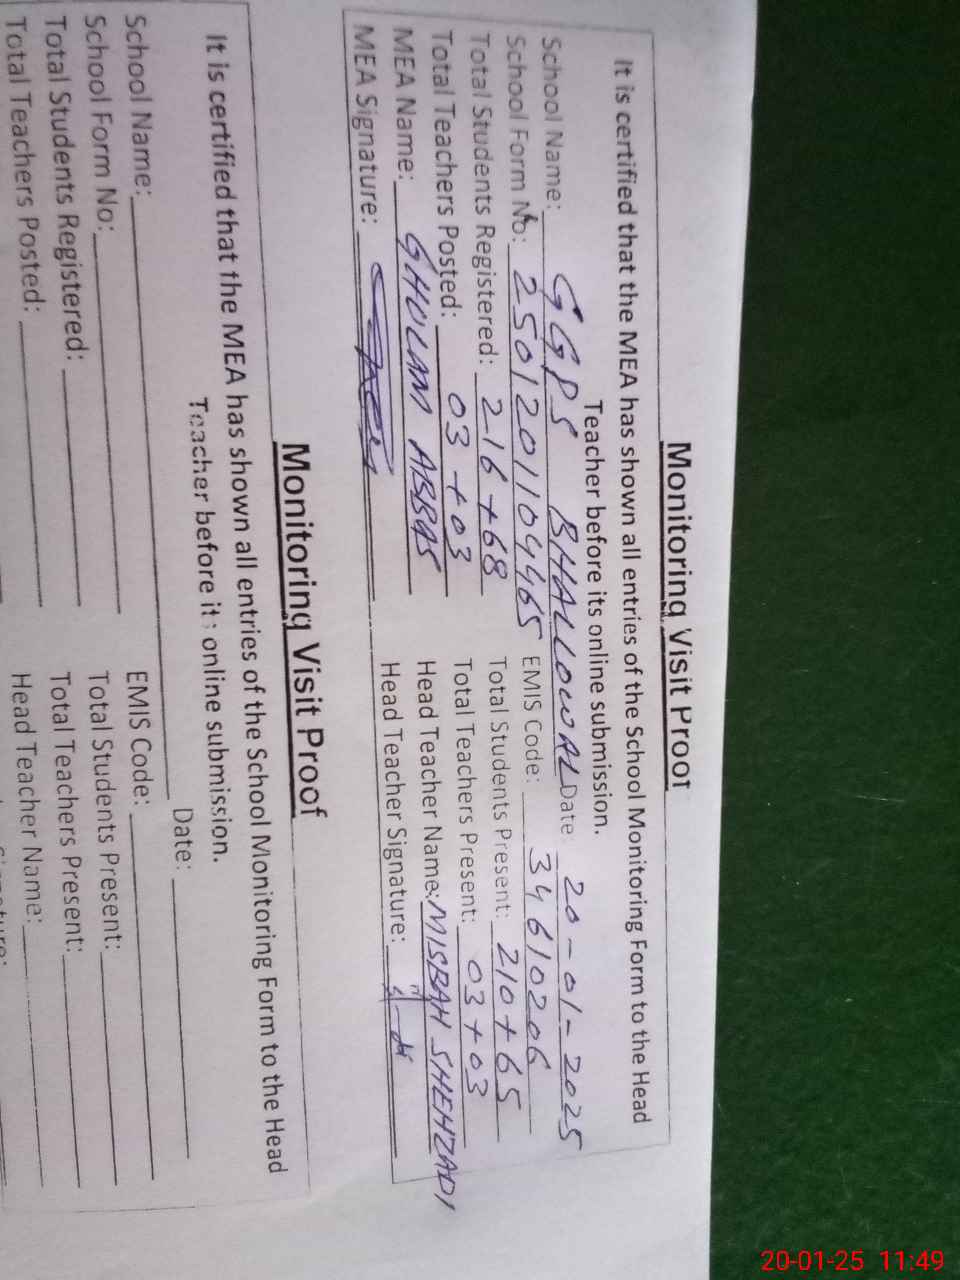 Monitoring Visit Proof
It is certified that the MEA has shown all entries of the School Monitoring Form to the Head
Teacher before its online submission.
School Name: GGPS BHALLOWAL Date: 20-01-2025
School Form No: 2501201104465 EMIS Code: 34610206
Total Students Registered: 216+68 Total Students Present: 210+65
Total Teachers Posted: 03+03 Total Teachers Present: 03+03
MEA Name: GHULAM ABBAS Head Teacher Name: MISBAH SHEHZADI
MEA Signature: Head Teacher Signature:
Monitoring Visit Proof
It is certified that the MEA has shown all entries of the School Monitoring Form to the Head
Teacher before its online submission.
School Name: Date:
School Form No: EMIS Code:
Total Students Registered: Total Students Present:
Total Teachers Posted: Total Teachers Present:
Head Teacher Name:
20-01-25 11:49